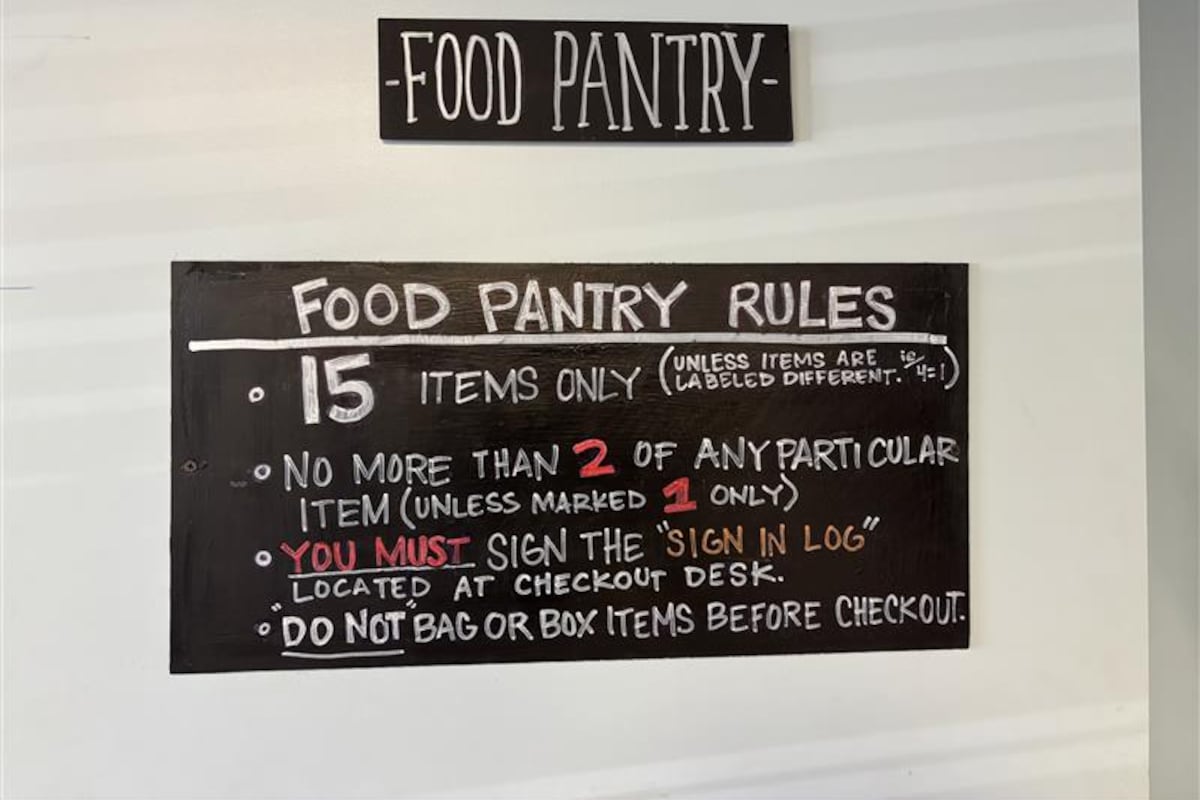 -FOOD PANTRY-
FOOD PANTRY RULES
• 15 ITEMS ONLY (UNLESS ITEMS ARE LABELED DIFFERENT. ie/ 4=1)
• NO MORE THAN 2 OF ANY PARTICULAR
ITEM (UNLESS MARKED 1 ONLY)
• YOU MUST SIGN THE "SIGN IN LOG"
LOCATED AT CHECKOUT DESK.
• "DO NOT" BAG OR BOX ITEMS BEFORE CHECKOUT.